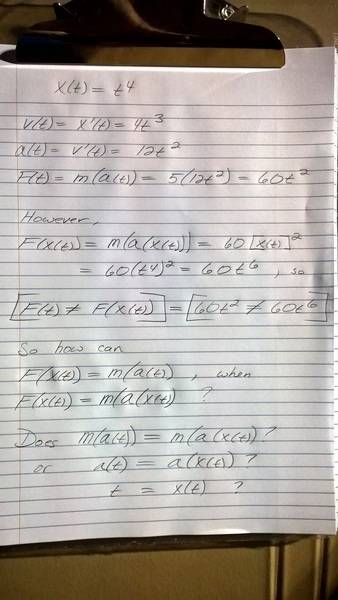 x(t) = t⁴
v(t) = x'(t) = 4t³
a(t) = v'(t) = 12t²
F(t) = m(a(t)) = 5(12t²) = 60t²
However,
F(x(t)) = m(a(x(t))) = 60[x(t)]²
= 60(t⁴)² = 60t⁶, so
[F(t) ≠ F(x(t))] = [60t² ≠ 60t⁶]
So how can
F(x(t)) = m(a(t)), when
F(x(t)) = m(a(x(t)) ?
Does m(a(t)) = m(a(x(t)) ?
or a(t) = a(x(t)) ?
t = x(t) ?